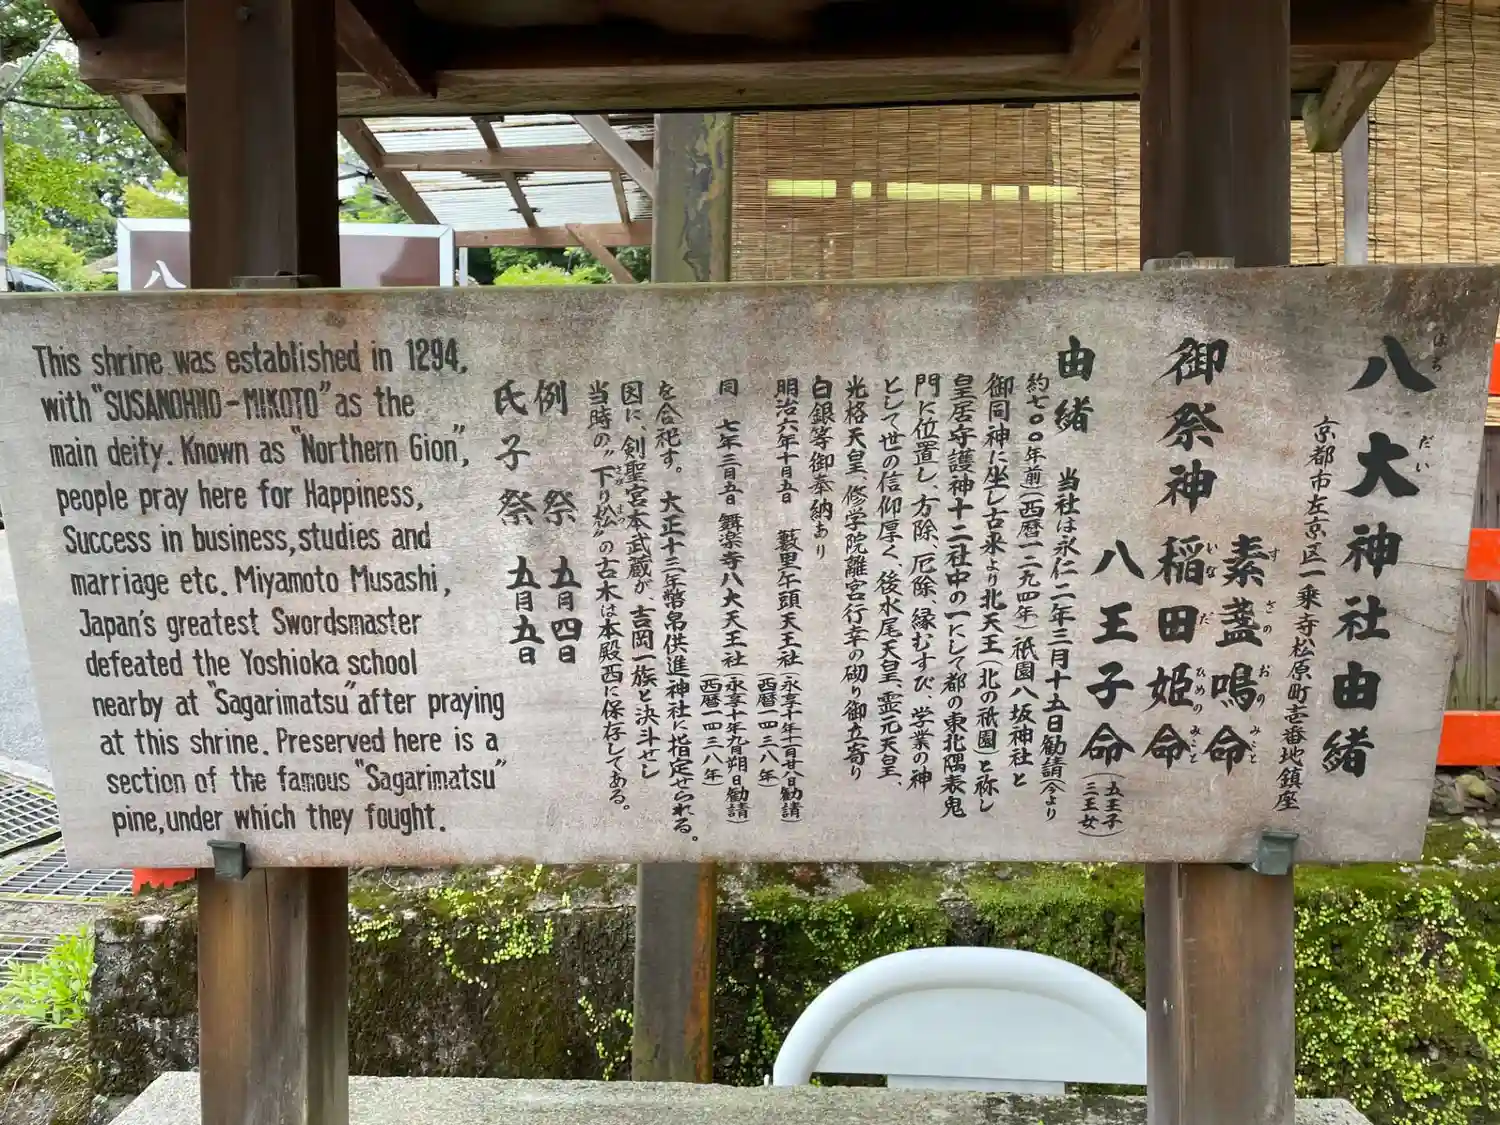 八
This shrine was established in 1294,
with "SUSANOHNO-MIKOTO" as the
main deity. Known as "Northern Gion",
people pray here for Happiness,
Success in business, studies and
marriage etc. Miyamoto Musashi,
Japan's greatest Swordsmaster
defeated the Yoshioka school
nearby at "Sagarimatsu" after praying
at this shrine. Preserved here is a
section of the famous "Sagarimatsu"
pine, under which they fought.
八大神社由緒
はち だい
京都市左京区一乗寺松原町壱番地鎮座
御祭神 素盞嗚命
す さの おの みこと
稲田姫命
いな だ ひめの みこと
八王子命 (五王子 三王女)
由緒 当社は永仁二年三月十五日勧請今より
約七〇〇年前(西暦一二九四年)祇園八坂神社と
御同神に坐し古来より北天王(北の祇園)と称し
皇居守護神十二社中の一にして都の東北隅表鬼
門に位置し、方除、厄除、縁むすび、学業の神
として世の信仰厚く、後水尾天皇、霊元天皇、
光格天皇、修学院離宮行幸の砌り御立寄り
白銀等御奉納あり
明治六年十月五日 藪里牛頭天王社(永享十年十一月廿八日勧請 西暦一四三八年)
同 七年三月五日 舞楽寺八大天王社(永享十年九月朔日勧請 西暦一四三八年)
を合祀す。大正十三年幣帛供進神社に指定せられる。
因に、剣聖宮本武蔵が、吉岡一族と決斗せし
当時の〝下り松〟の古木は本殿西に保存してある。
さが まつ
例祭 五月四日
氏子祭 五月五日